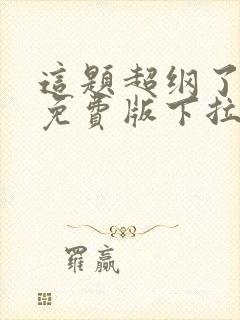 這題超纲了
免費版下拉
羅贏